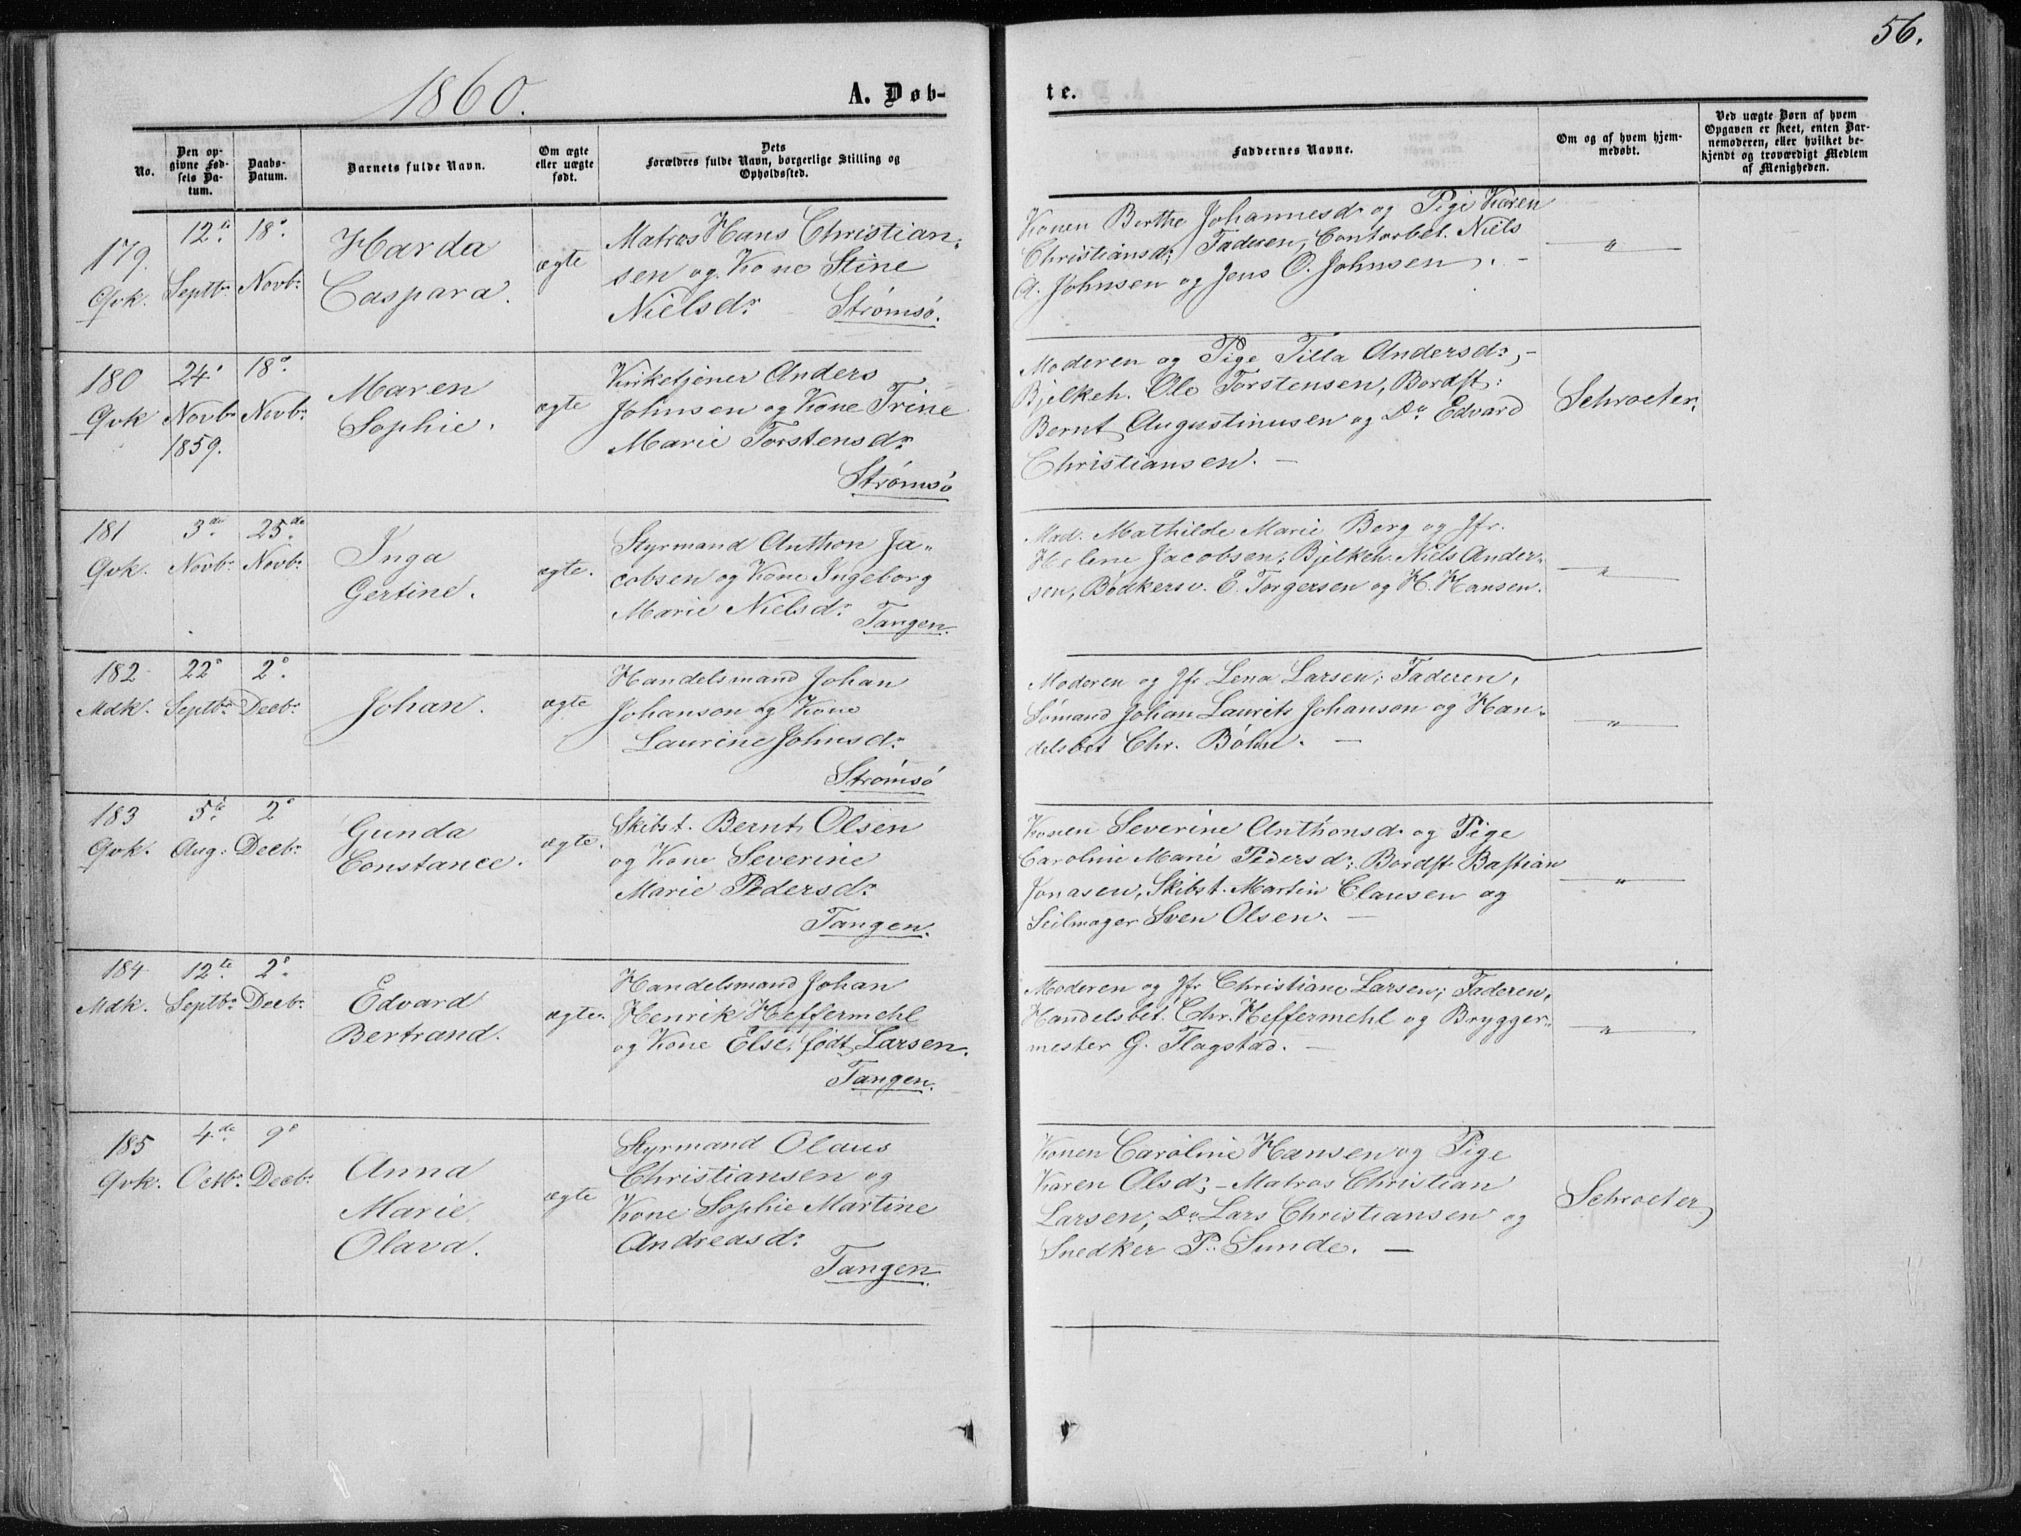 56.
1860.
A. Døb-
te.
No.
Den op-
givne Fød-
sels Da-
tum.
Daabs-
Datum.
Barnets fulde Navn.
Om ægte
eller uægte
født.
Dets
Forældres fulde Navn, borgerlige Stilling og
Opholdssted.
Faddernes Navne.
Om og af hvem hjem-
medøbt.
Ved uægte Børn af hvem
Opgaven er skeet, enten Bar-
nemoderen, eller hvilket be-
kjendt og troværdigt Medlem
af Menigheden.
179.
Qvk.
12te
Septbr.
18o.
Novbr
Harda
Caspara.
ægte
Matros Hans Christian-
sen og Kone Stine
Nielsdr.
Strømsö.
Konen Berthe Johannesd. og Pige Karen
Christiansd; Faderen, Contorbet. Niels
A. Johnsen og Jens O. Johnsen. -
"
180
Qvk
24.
Novbr
1859.
18o.
Novbr.
Maren
Sophie.
ægte
Kirketjener Anders
Johnsen og Kone Trine
Marie Torstensdr.
Strömsö
Moderen og Pige Tilla Andersdr, -
Bjelkeh. Ole Torstensen, Bordft:
Bernt Augustinusen og Do Edvard
Christiansen. -
Schroeter.
181
Qvk.
3die.
Novbr.
25de
Novbr.
Inga
Gertine.
ægte.
Styrmand Anthon Ja-
cobsen og Kone Ingeborg
Marie Nielsdr.
Tangen.
Mad. Mathilde Marie Borg og Jfr.
Helene Jacobsen; Bjelkeh. Niels Ander-
sen, Bødkersv. E. Torgersen og H. Hansen.
"
182
Mdk.
22o
Septbr.
2o.
Decbr.
Johan.
ægte
Handelsmand Johan
Johanson og Kone
Laurine Johnsdr.
Strömsö
Moderen og Jfr Lena Larsen; Faderen,
Sömand Johan Laurits Johanson og Han-
delsbet Chr. Böhn. -
"
183
Qvk.
5te
Aug:
2o
Decbr.
Gunda
Constance.
ægte.
Skibst. Bernt Olsen
og Kone Severine
Marie Pedersdr.
Tangen.
Konen Severine Anthonsd. og Pige
Caroline Marie Pedersdr; Bordft. Bastian
Jonasen, Skibst. Martin Clausen og
Seilmager Sven Olsen. -
"
184
Mdk.
12te.
Septbr
2o.
Decbr.
Edvard
Bertrand.
ægte.
Handelsmand Johan
Henrik Heffermehl
og Kone Else, födt Larsen.
Tangen.
Moderen og Jfr Christiane Larsen; Faderen,
Handelsbet. Chr. Heffermehl og Brygger-
mester G. Flagstad. -
"
185
Qvk.
4de.
Octbr.
9o
Decbr.
Anna
Marie
Olava.
ægte
Styrmand Olaus
Christiansen og
Kone Sophie Martine
Andreasdr.
Tangen.
Konen Caroline Hansen og Pige
Karen Olsd; - Matros Christian
Larsen, Do Lars Christiansen og
Snedker P. Sunde. -
Schroeter